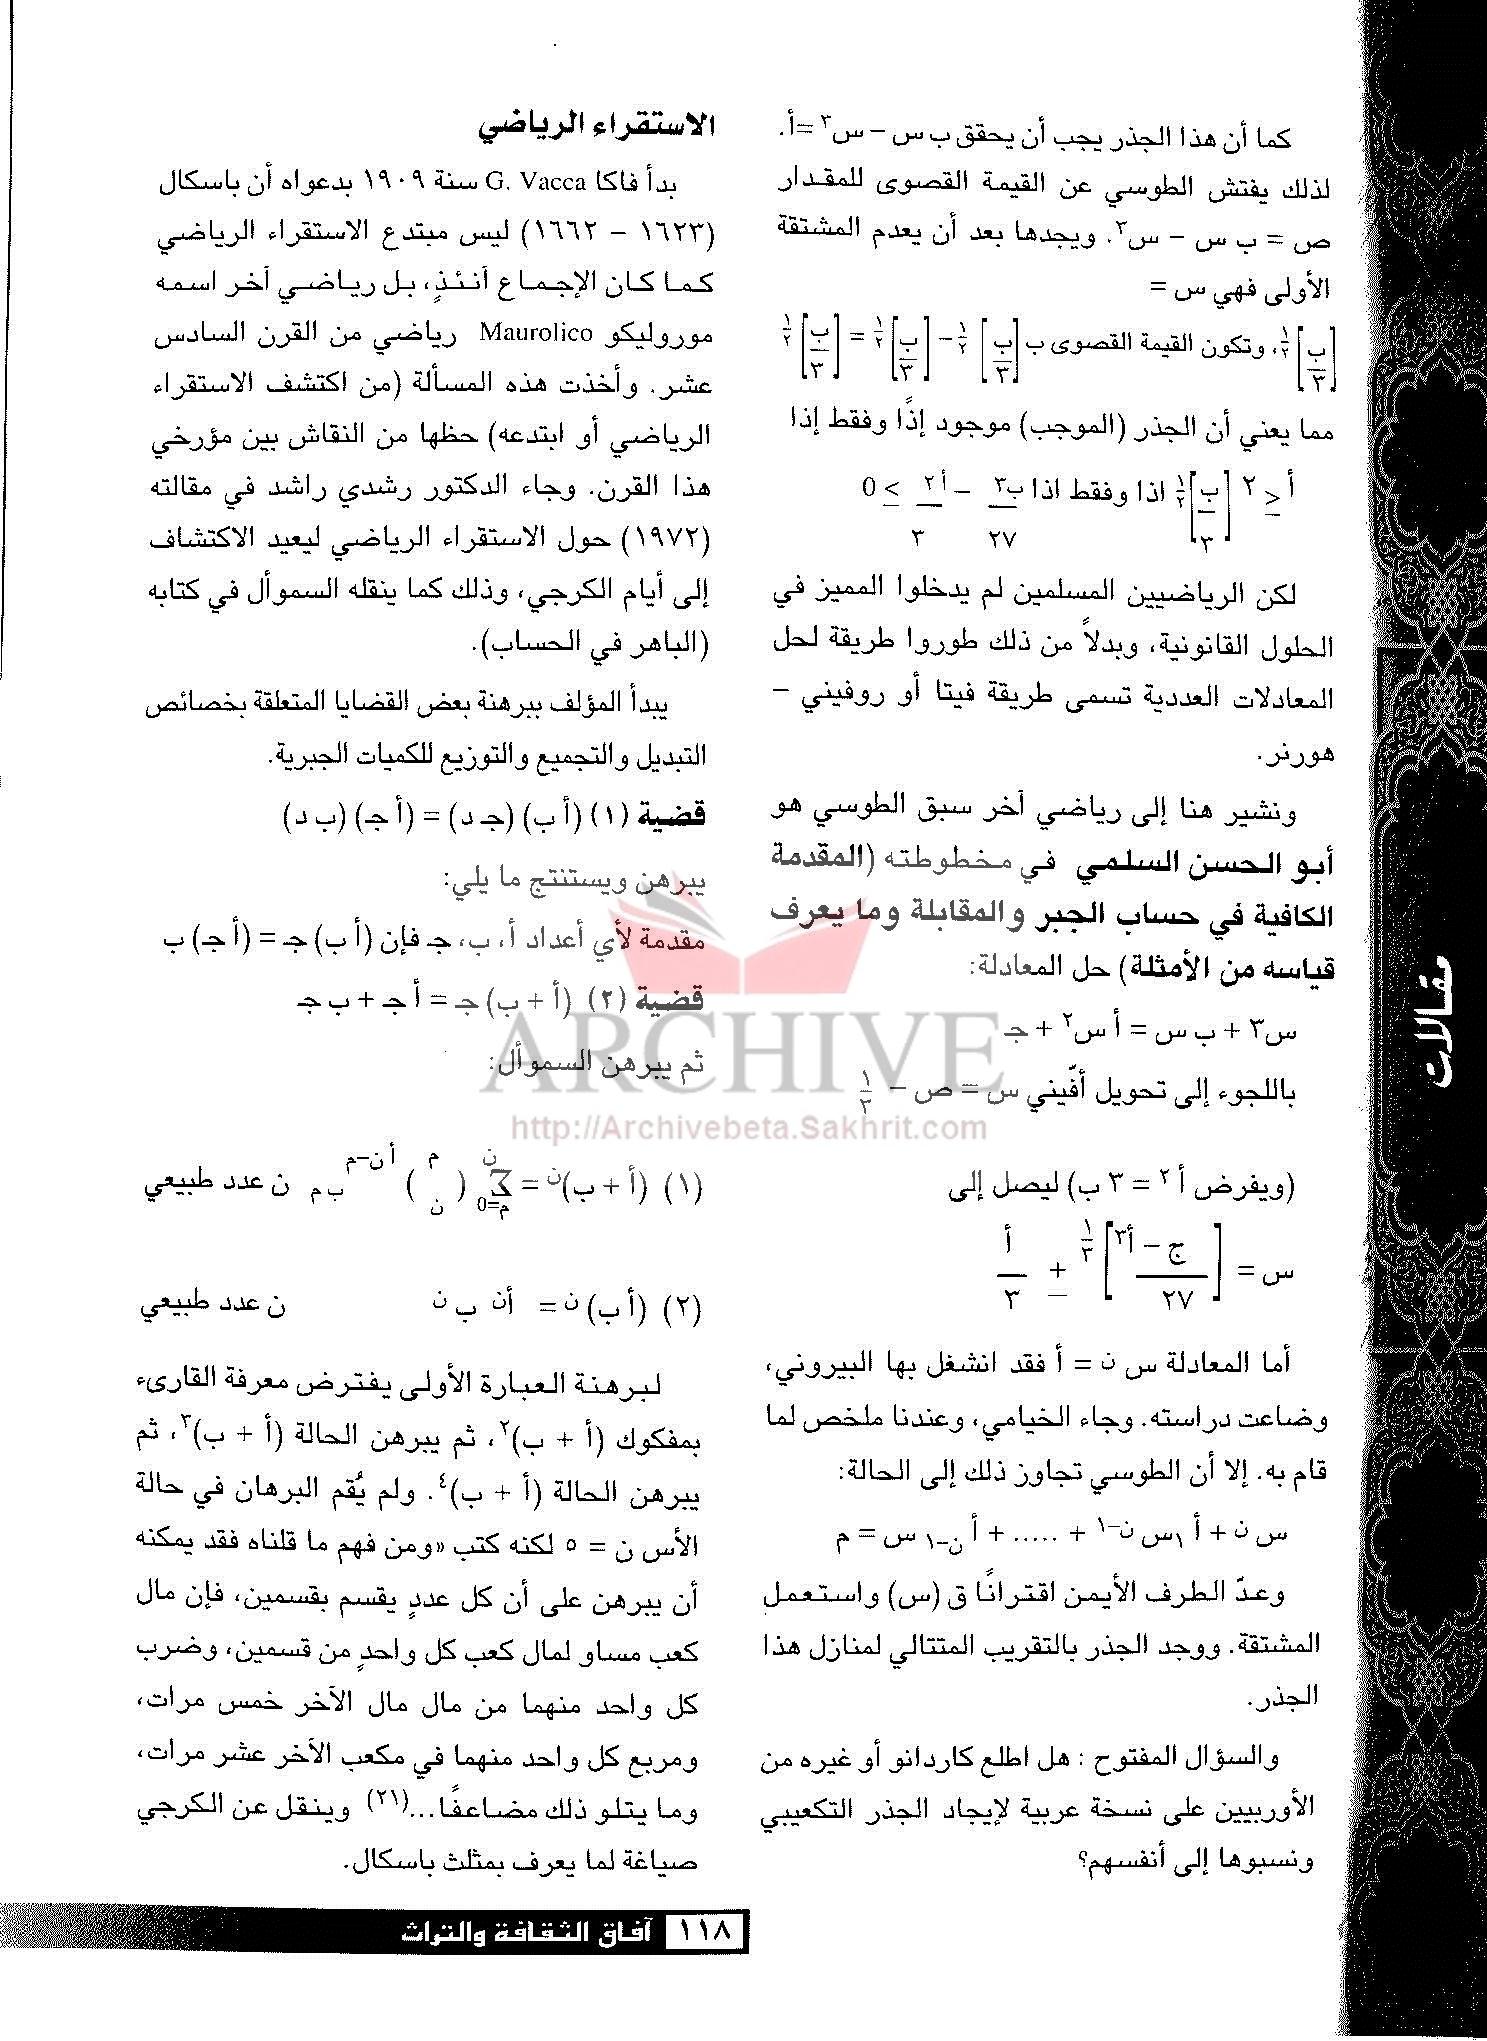 كما أن هذا الجذر يجب أن يحقق ب س – س٣ = أ.
لذلك يفتش الطوسي عن القيمة القصوى للمقدار
ص = ب س – س٣. ويجدها بعد أن يعدم المشتقة
الأولى فهي س =
[ب/٣]١/٢، وتكون القيمة القصوى ب [ب/٣]١/٢ – [ب/٣]١/٢ = [ب/٣]١/٢
مما يعني أن الجذر (الموجب) موجود إذًا وفقط إذا
أ ≤ ٢ [ب/٣]١/٢ اذا وفقط اذا ب٣/٢٧ – أ٢/٣ ≥ 0
لكن الرياضيين المسلمين لم يدخلوا المميز في
الحلول القانونية، وبدلاً من ذلك طوروا طريقة لحل
المعادلات العددية تسمى طريقة فيتا أو روفيني –
هورنر.
ونشير هنا إلى رياضي آخر سبق الطوسي هو
أبو الحسن السلمي في مخطوطته (المقدمة
الكافية في حساب الجبر والمقابلة وما يعرف
قياسه من الأمثلة) حل المعادلة:
س٣ + ب س = أ س٢ + جـ
باللجوء إلى تحويل أفّيني س = ص – ١/٣
(ويفرض أ٢ = ٣ ب) ليصل إلى
س = [ج – أ٣/٢٧]١/٣ ± أ/٣
أما المعادلة س ن = أ فقد انشغل بها البيروني،
وضاعت دراسته. وجاء الخيامي، وعندنا ملخص لما
قام به. إلا أن الطوسي تجاوز ذلك إلى الحالة:
س ن + أ ١س ن–١ + ..... + أ ن–١ س = م
وعدّ الطرف الأيمن اقترانًا ق (س) واستعمل
المشتقة. ووجد الجذر بالتقريب المتتالي لمنازل هذا
الجذر.
والسؤال المفتوح : هل اطلع كاردانو أو غيره من
الأوربيين على نسخة عربية لإيجاد الجذر التكعيبي
ونسبوها إلى أنفسهم؟
الاستقراء الرياضي
بدأ فاكا G. Vacca سنة ١٩٠٩ بدعواه أن باسكال
(١٦٢٣ – ١٦٦٢) ليس مبتدع الاستقراء الرياضي
كما كان الإجماع آنئذٍ، بل رياضي آخر اسمه
موروليكو Maurolico رياضي من القرن السادس
عشر. وأخذت هذه المسألة (من اكتشف الاستقراء
الرياضي أو ابتدعه) حظها من النقاش بين مؤرخي
هذا القرن. وجاء الدكتور رشدي راشد في مقالته
(١٩٧٢) حول الاستقراء الرياضي ليعيد الاكتشاف
إلى أيام الكرجي، وذلك كما ينقله السموأل في كتابه
(الباهر في الحساب).
يبدأ المؤلف ببرهنة بعض القضايا المتعلقة بخصائص
التبديل والتجميع والتوزيع للكميات الجبرية.
قضية (١) (أ ب) (جـ د) = (أ جـ) (ب د)
يبرهن ويستنتج ما يلي:
مقدمة لأي أعداد أ، ب، جـ فإن (أ ب) جـ = (أ جـ) ب
قضية (٢) (أ + ب) جـ = أ جـ + ب جـ
ثم يبرهن السموأل:
(١) (أ + ب)ن = ن Σ م=0 (م ن) أن–م ب م ن عدد طبيعي
(٢) (أ ب) ن = أن ب ن ن عدد طبيعي
لبرهنة العبارة الأولى يفترض معرفة القارىء
بمفكوك (أ + ب)٢، ثم يبرهن الحالة (أ + ب)٣، ثم
يبرهن الحالة (أ + ب)٤. ولم يُقم البرهان في حالة
الأس ن = ٥ لكنه كتب «ومن فهم ما قلناه فقد يمكنه
أن يبرهن على أن كل عددٍ يقسم بقسمين، فإن مال
كعب مساو لمال كعب كل واحدٍ من قسمين، وضرب
كل واحد منهما من مال مال الآخر خمس مرات،
ومربع كل واحد منهما في مكعب الآخر عشر مرات،
وما يتلو ذلك مضاعفًا...(٢١) وينقل عن الكرجي
صياغة لما يعرف بمثلث باسكال.
مقالات
ARCHIVE
http://Archivebeta.Sakhrit.com
١١٨ آفاق الثقافة والتراث